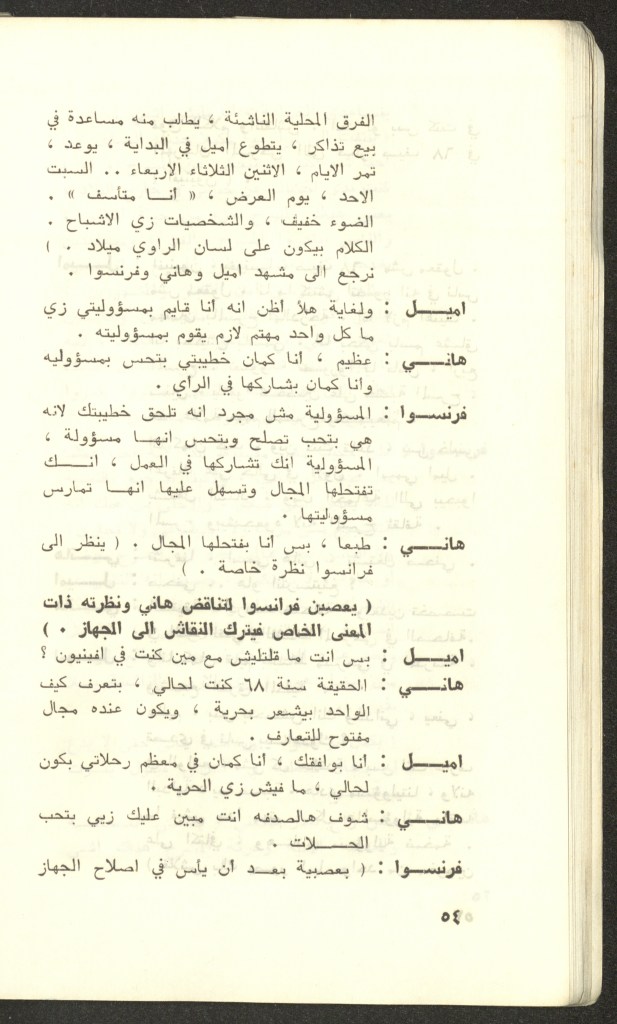 الفرق المحلية الناشئة ، يطالب منه مساعدة في
بيع تذاكر ، يتطوع اميل في البداية ، يوعد ،
تمر الايام ، الاثنين الثلاثاء الاربعاء .. السبت
الاحد ، يوم العرض ، « أنـا متأسف » .
الضوء خفيف ، والشخصيات زي الاشباح .
الكلام بيكون على لسان الراوي ميلاد . )
نرجع الى مشهد اميل وهاني وفرنسوا .
اميـــل : ولغاية هلأ أظن انه أنا قايم بمسؤوليتي زي
ما كل واحد مهتم لازم يقوم بمسؤوليته .
هانـــي : عظيم ، أنا كمان خطيبتي بتحس بمسؤوليه
وانا كمان بشاركها في الرأي .
فرنســوا : المسؤولية مش مجرد انه تلحق خطيبتك لانه
هي بتحب تصلح وبتحس انهـا مسؤولة ،
المسؤولية انك تشاركها في العمل ، انــك
تفتحلها المجال وتسهل عليها انهـا تمارس
مسؤوليتها .
هانـــي : طبعا ، بس أنا بفتحلها المجال . ( ينظر الى
فرانسوا نظرة خاصة . )
( يعصبن فرانسوا لتناقض هاني ونظرته ذات
المعنى الخاص فيترك النقاش الى الجهاز . )
اميـــل : بس انت ما قلتليش مع مين كنت في افينيون ؟
هانـــي : الحقيقة سنة ٦٨ كنت لحالي ، بتعرف كيف
الواحد بيشعر بحرية ، ويكون عنده مجال
مفتوح للتعارف .
اميـــل : أنا بوافقك ، أنا كمان في معظم رحلاتي بكون
لحالي ، ما فيش زي الحرية .
هانـــي : شوف هالصدفه انت مبين عليك زيي بتحب
الحـــلات .
فرنســوا : ( بعصبية بعــد أن يأس في اصلاح الجهاز
٥٤